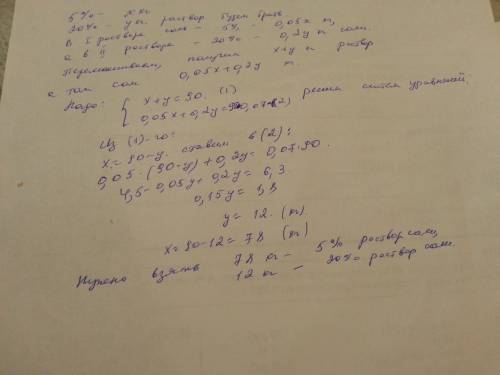 5% - x кг
20% - y кг. раствор будем брать
В I растворе соли - 5% - 0,05x кг,
а в II растворе - 20% - 0,2y кг соли.
Перемешиваем, получим x+y кг раствор
а там соли 0,05x+0,2y кг.
Надо: { x+y=90. (1)
0,05x+0,2y=90·0,07 (2) решаем систем уравнений.
Из (1)-го:
x=90-y. ставим в (2):
0,05·(90-y)+0,2y=0,07·90.
4,5-0,05y+0,2y=6,3
0,15y=1,8
y=12. (кг)
x=90-12=78 (кг)
Нужно взять 78 кг - 5% раствор соли,
12 кг - 20% раствор соли.